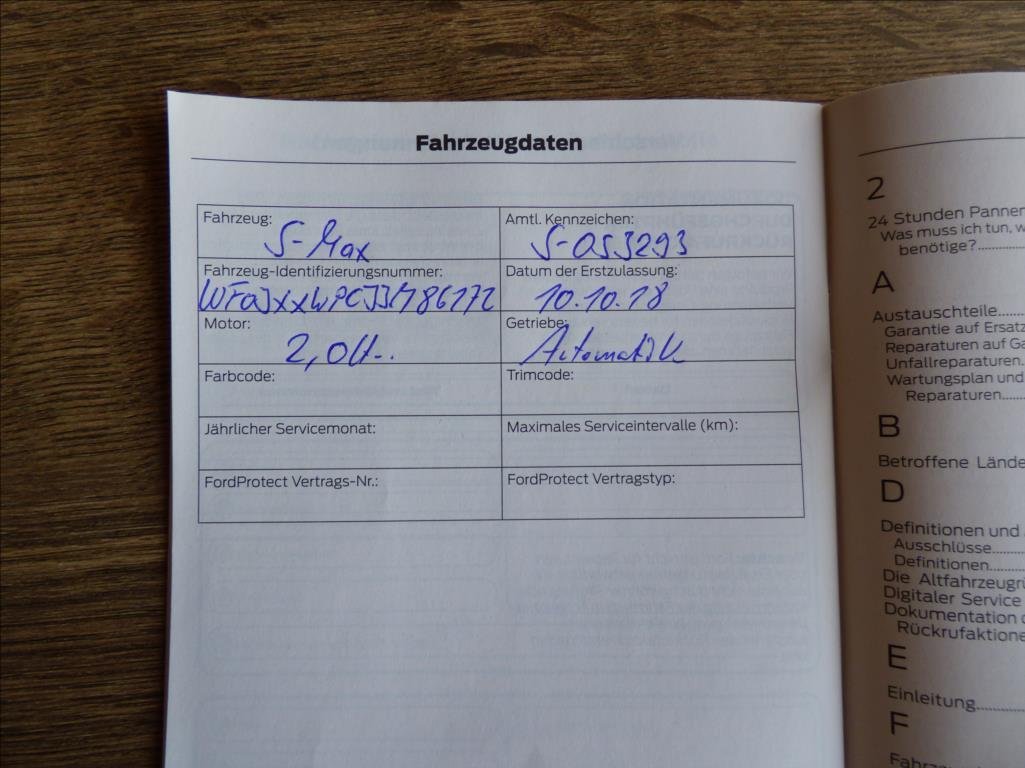 Fahrzeugdaten
Fahrzeug: S-Max
Amtl. Kennzeichen: S-OS3293
Fahrzeug-Identifizierungsnummer:
Datum der Erstzulassung: 10.10.18
Motor:
Getriebe: Automatik
Farbcode:
Trimcode:
Jährlicher Servicemonat:
Maximales Serviceintervalle (km):
FordProtect Vertrags-Nr.:
FordProtect Vertragstyp:
2
24 Stunden Panner
Was muss ich tun, w
benötige?
A
Austauschteile
Garantie auf Ersatz
Reparaturen auf Ga
Unfallreparaturen.
Wartungsplan und
Reparaturen
B
Betroffene Lände
D
Definitionen und
Ausschlüsse
Definitionen
Die Altfahrzeugr
Digitaler Service
Dokumentation
Rückrufaktione
E
Einleitung
F